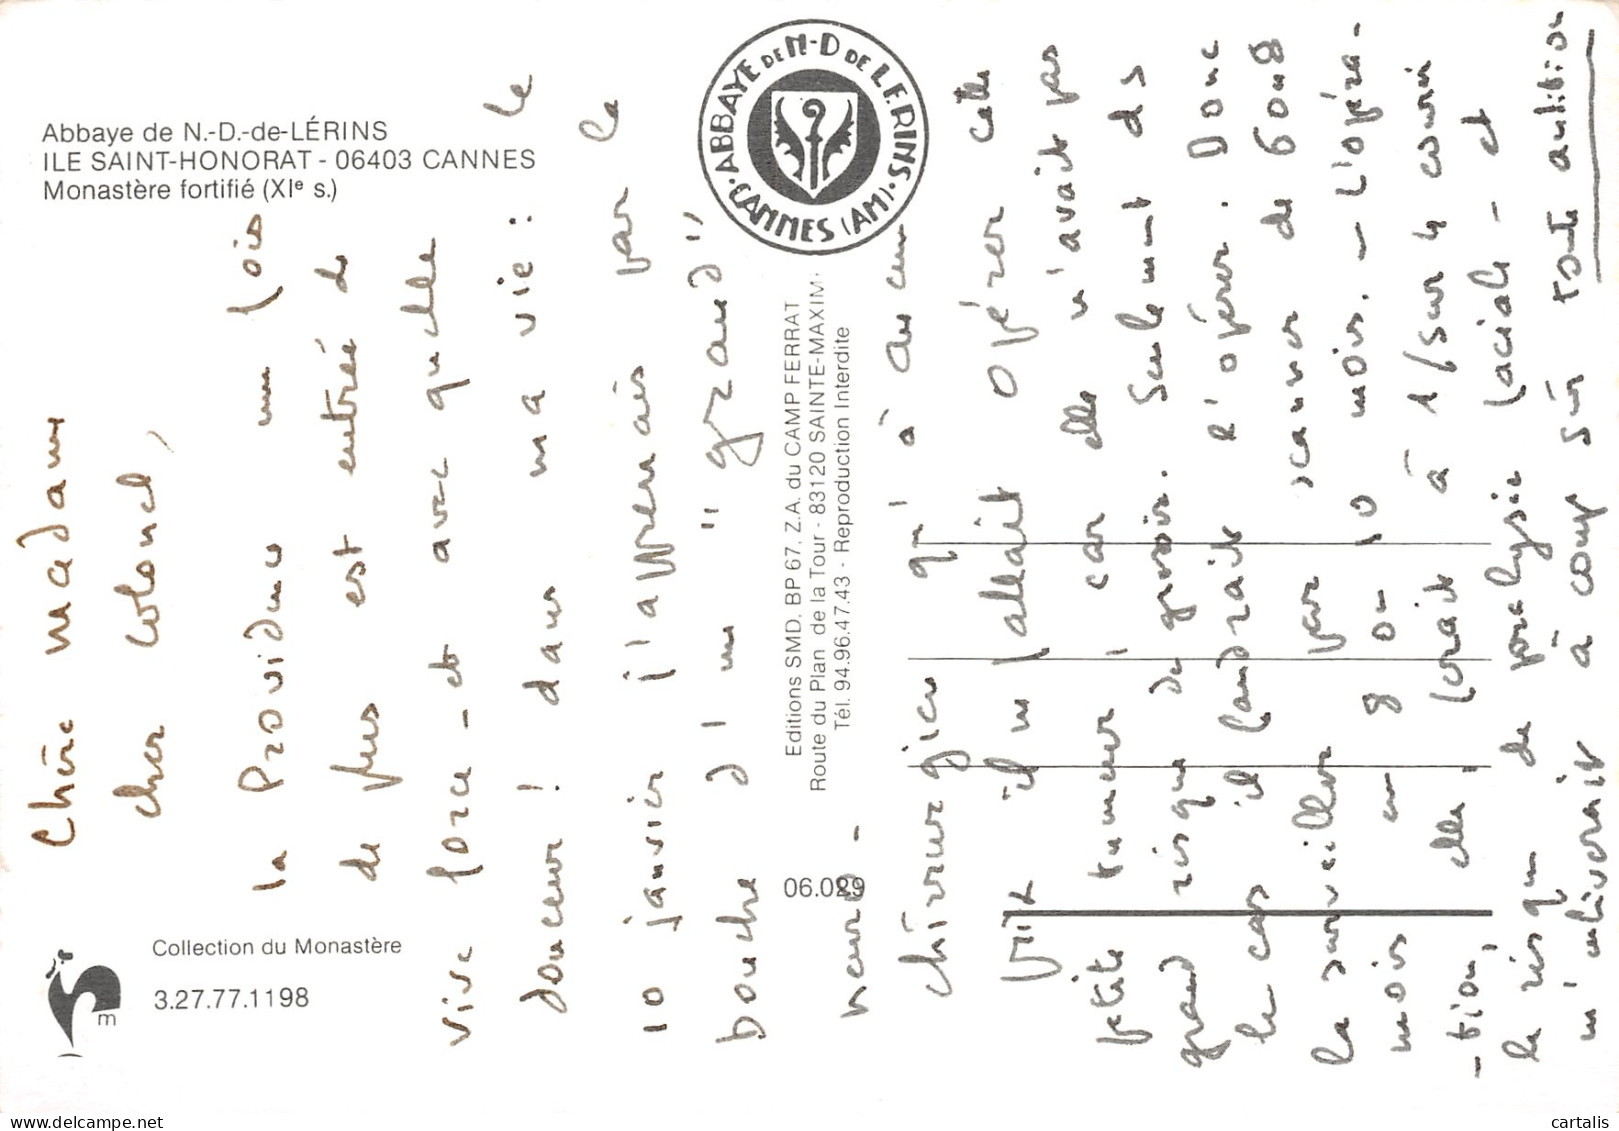 Abbaye de N.-D.-de-LÉRINS
ILE SAINT-HONORAT - 06403 CANNES
Monastère fortifié (XIe s.)
ABBAYE DE N-D DE LERINS
CANNES (AM)
Editions SMD. BP 67. Z.A. du CAMP FERRAT
Route du Plan de la Tour - 83120 SAINTE-MAXIM
Tél. 94.96.47.43 - Reproduction Interdite
06.029
Collection du Monastère
3.27.77.1198
m
Chère madame
cher colonel,
la Providence une fois
de plus est entrée de
vive force - et avec quelle
douceur ! dans ma vie : le
10 janvier j'apprenais par la
bouche d'un "grand"
neuro -
chirurgien qu'à aucun
prix il ne fallait opérer cette
petite tumeur, car elle n'avait pas
grand risque de grossir. Seulement ds
le cas il faudrait l'opérer. Donc
la surveiller par scanner de 6 ou 8
mois en 8 ou 10 mois. - L'opéra-
-tion, elle, ferait à 1/sur 4 courir
le risque de paralysie faciale - et
m'enlèverait à coup sûr toute audition
cartalis